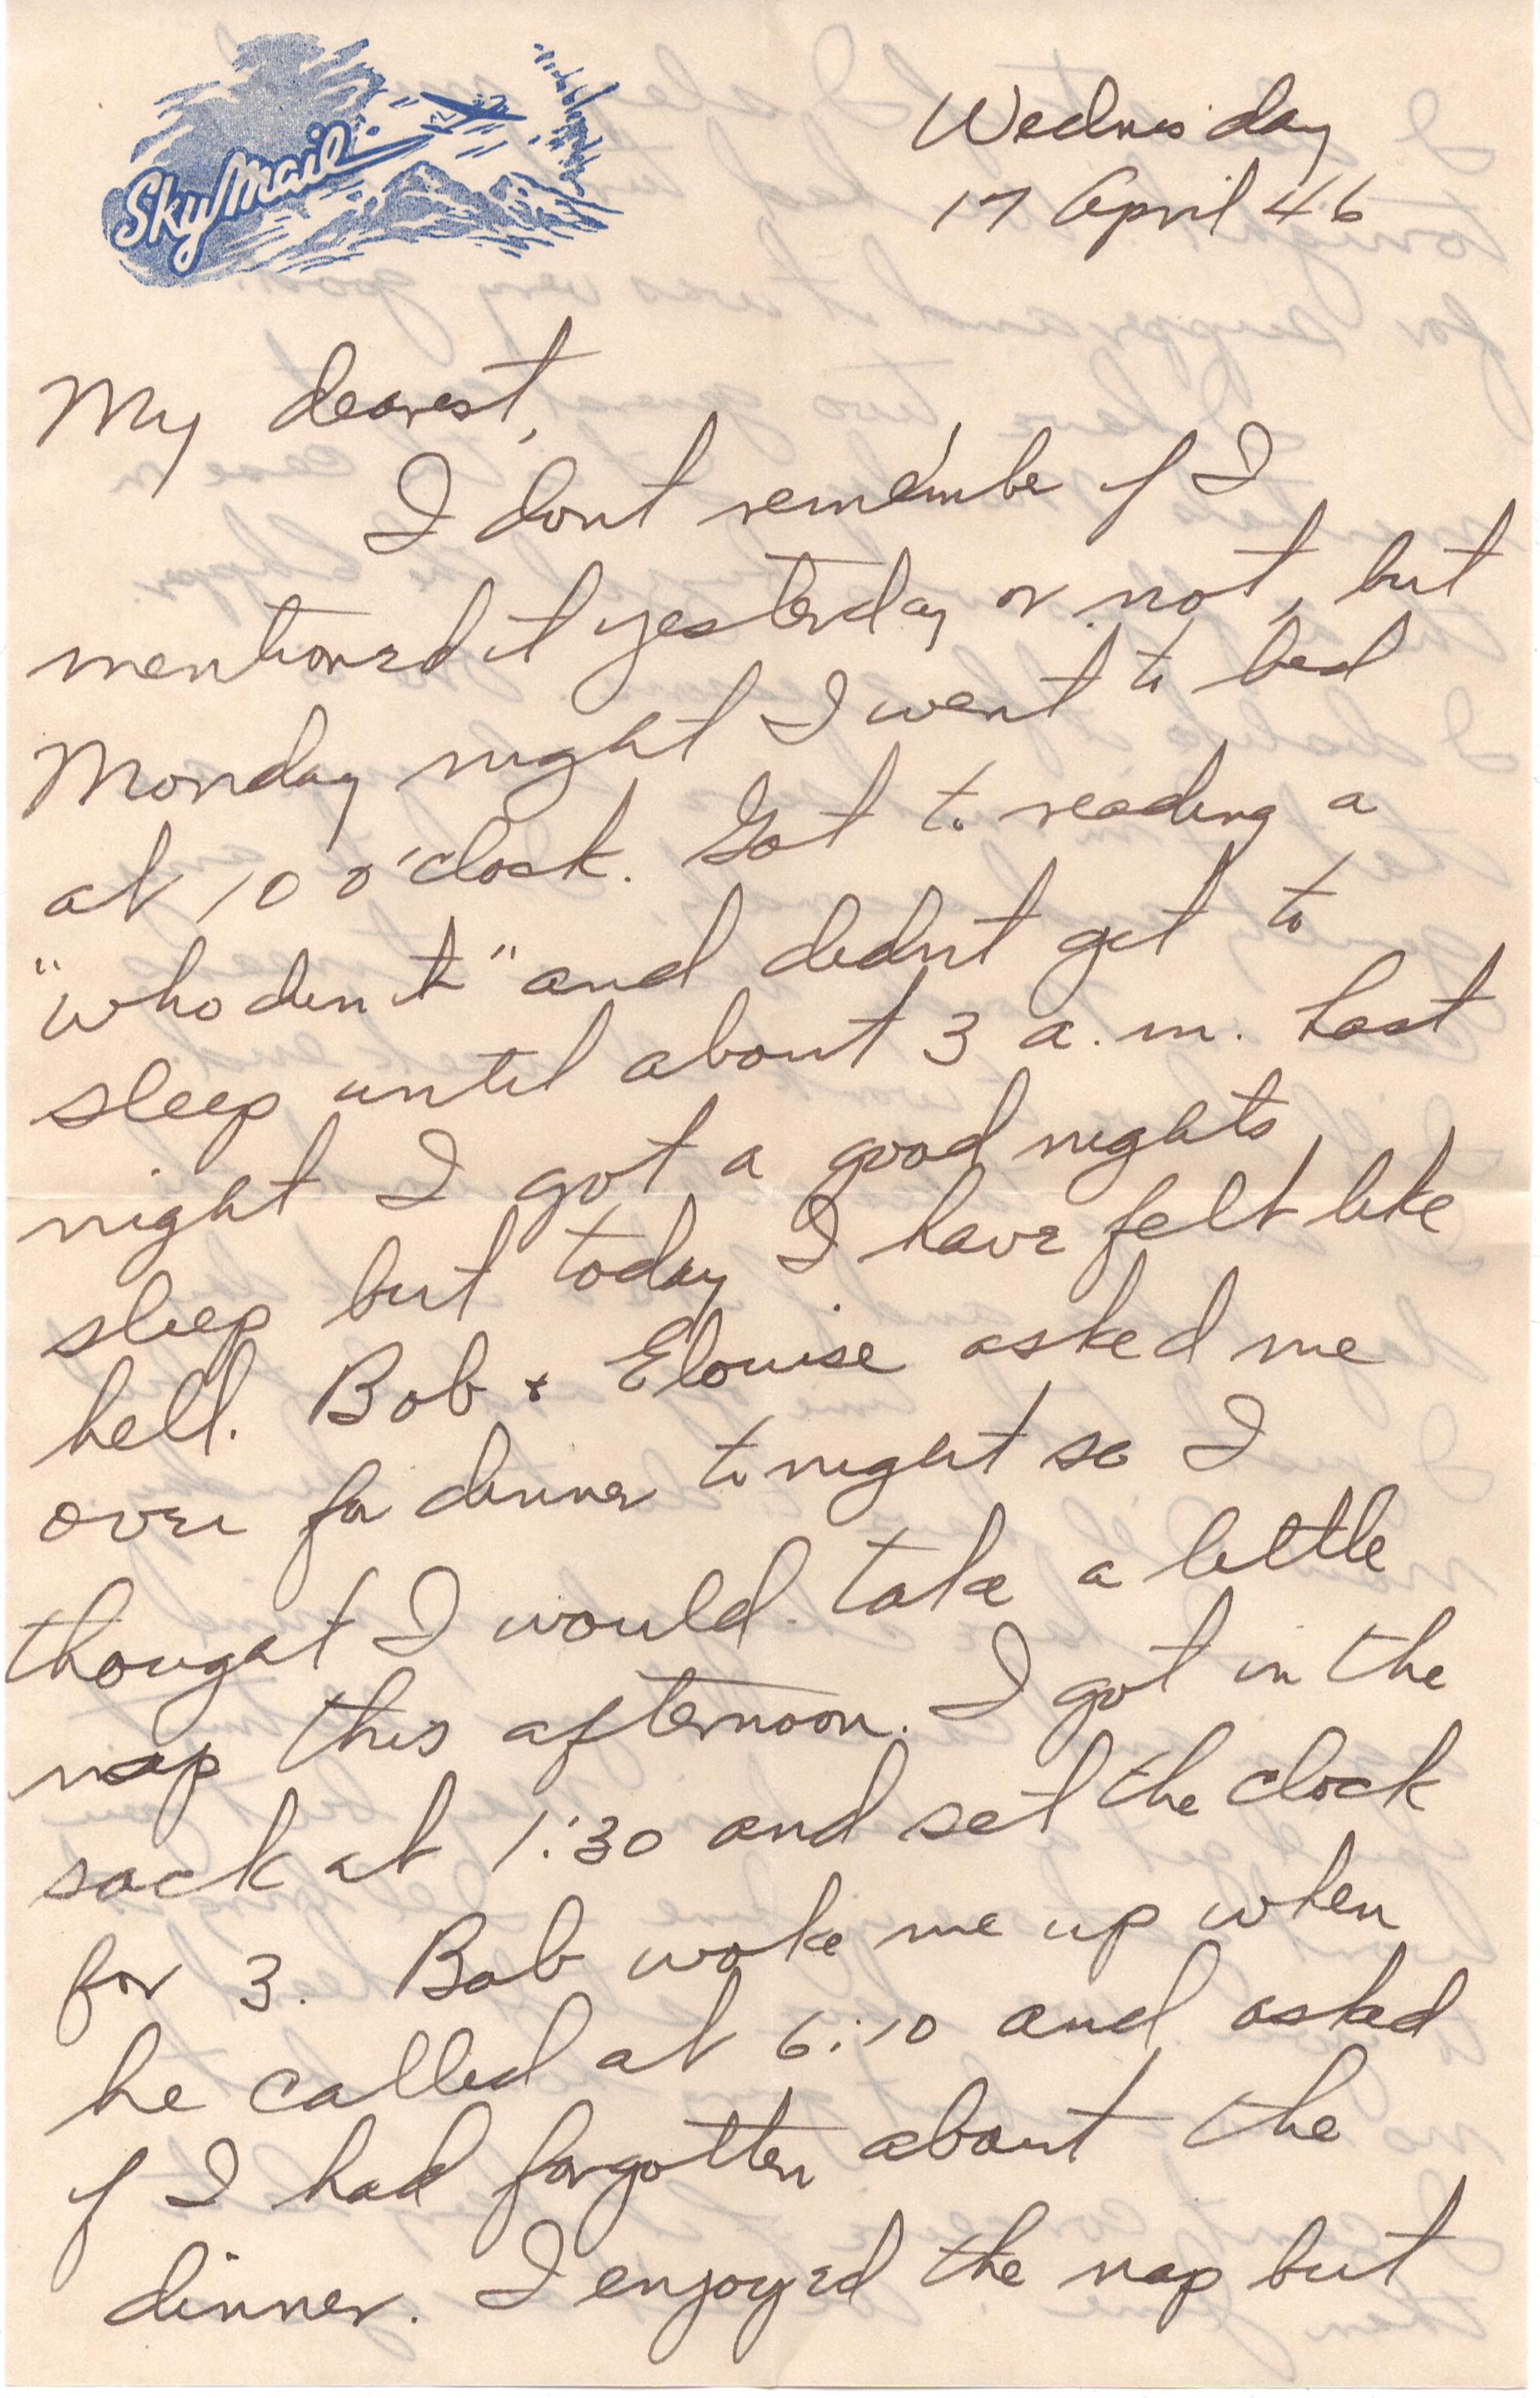 Sky Mail
Wednesday
17 April 46
My dearest,
I dont remember if I
mentioned it yesterday or not, but
Monday night I went to bed
at 10 o'clock. Got to reading a
"who dun it" and didn't get to
sleep until about 3 a.m. Last
night I got a good nights
sleep but today I have felt like
hell. Bob + Elouise asked me
over for dinner tonight so I
thought I would take a little
nap this afternoon. I got in the
sack at 1:30 and set the clock
for 3. Bob woke me up when
he called at 6:10 and asked
if I had forgotten about the
dinner. I enjoyed the nap but